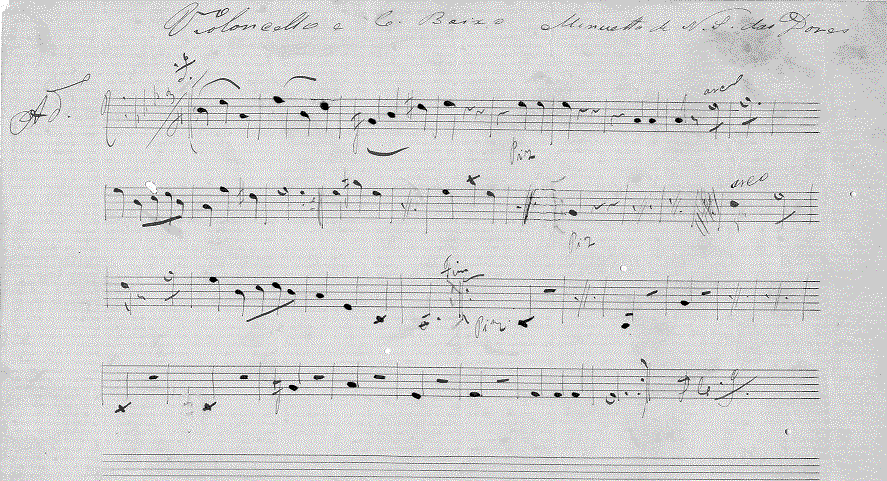 Violoncello e C. Baixo Minuetto de N. S. das Dores
arco
Piz
arco
Piz
Fim
Piz
D. C.